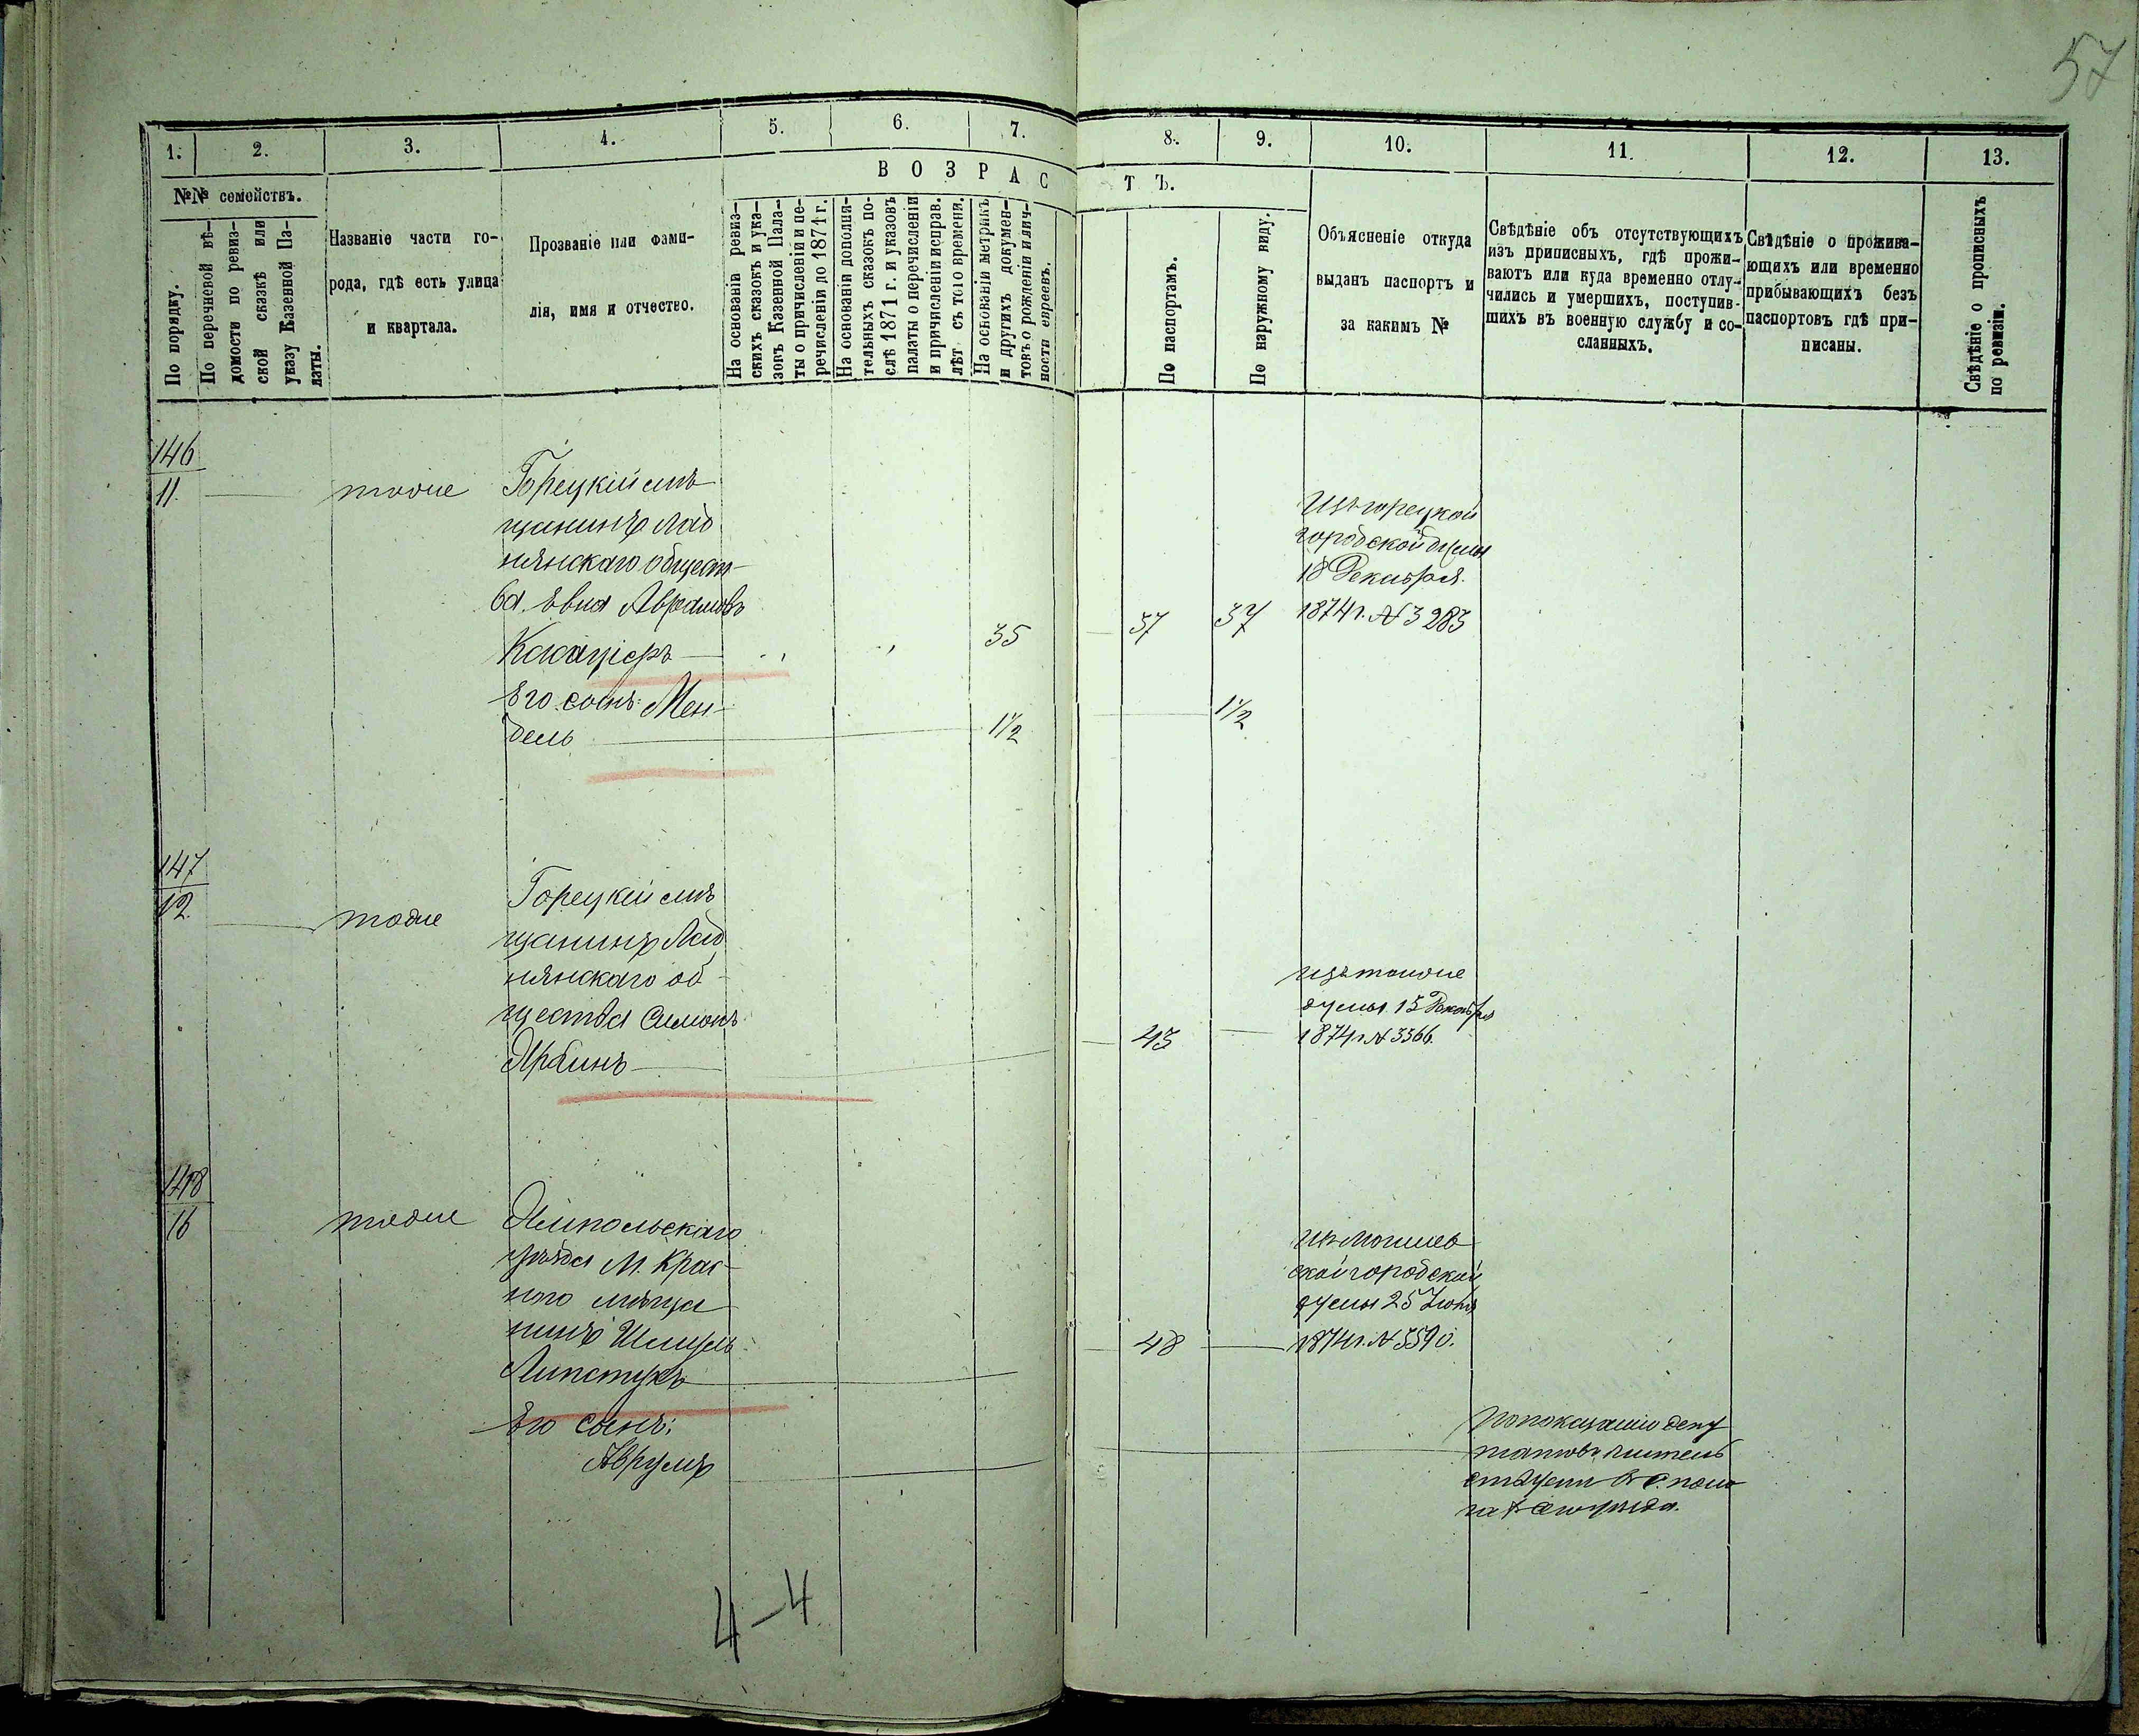 57
1. 2. 3. 4. 5. 6. 7. 8. 9. 10. 11. 12. 13.
№№ семействъ.
По порядку.
По перечневой вѣ-
домости по ревиз-
ской сказкѣ или
указу Казенной Па-
латы.
Названіе части го-
рода, гдѣ есть улица
и квартала.
Прозваніе или фами-
лія, имя и отчество.
ВОЗРАСТЪ.
На основаніи ревиз-
скихъ сказокъ и ука-
зовъ Казенной Пала-
ты о причисленіи и пе-
речисленіи до 1871 г.
На основаніи дополни-
тельныхъ сказокъ по-
слѣ 1871 г. и указовъ
палаты о перечисленіи
и причисленіи исправ.
лѣт съ того времени.
На основаніи метрикъ
и другихъ докумен-
товъ о рожденіи и лич-
ности евреевъ.
По паспортамъ.
По наружному виду.
Объясненіе откуда
выданъ паспортъ и
за какимъ №
Свѣдѣніе объ отсутствующихъ
изъ приписныхъ, гдѣ прожи-
ваютъ или куда временно отлу-
чились и умершихъ, поступив-
шихъ въ военную службу и со-
сланныхъ.
Свѣдѣніе о прожива-
ющихъ или временно
прибывающихъ безъ
паспортовъ гдѣ при-
писаны.
Свѣдѣніе о прописныхъ
по ревизіи.
146
11
тоже
Горецкій мѣ
щанинъ Ляд
нянскаго общест-
ва Евна Аврамовъ
35
37
37
Изъ горецкой
городской думы
18 Декабря
1874 г. № 3283
Его сынъ: Мен-
дель
1½
1½
147
12
тоже
Горецкій мѣ
щанинъ Ляд
нянскаго об-
щества Симонъ
43
изъ тоже
думы 15 Декабря
1874 г № 3366.
148
16
тоже
уѣзда М. Крас-
ного мѣща
нинъ
Липстукъ
48
городской
думы 25
1874 г. № 5590.
Его сынъ:
Аврумъ
По показанію депу
татовъ житель
4-4